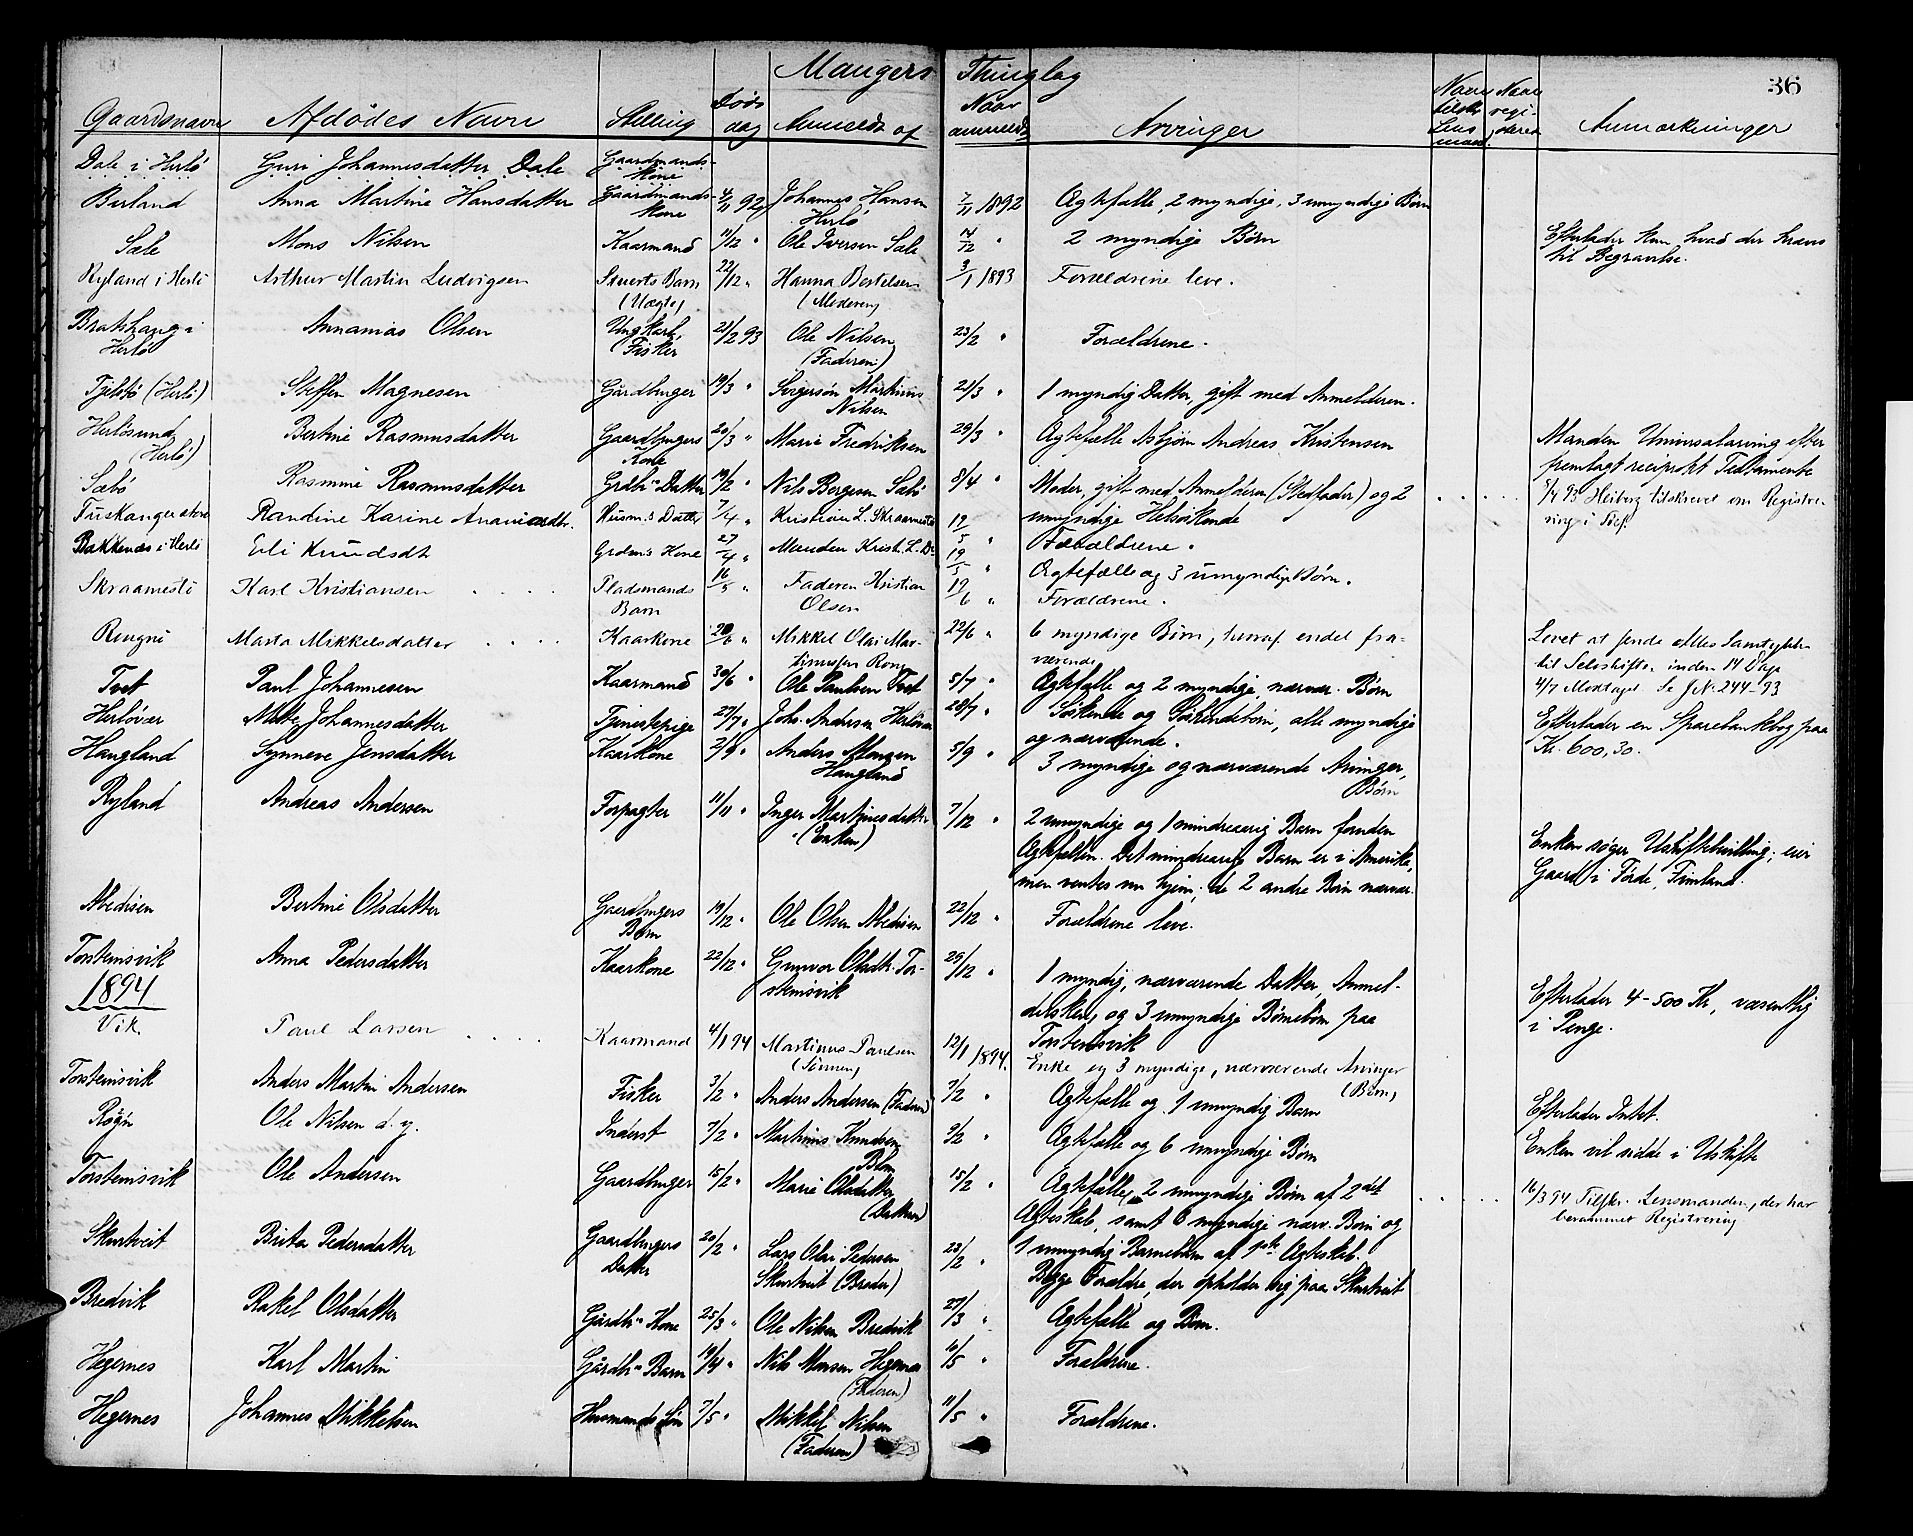 Maugers Thinglag
36
Gaardsnavn Afdødes Navn Stilling Døds dag Anmeldt af Naar anmeldt Arvinger Naar tilskr. Lensmand. Naar registreret Anmærkninger
Dale i Herlö Guri Johannesdatter Dale Gaardmands-Kone
Berland Anna Martine Hansdatter Gaardmands-Kone 4/11 92 Johannes Hansen Herlö 7/11 1892 Ægtefælle, 2 myndige, 3 umyndige Børn
Sæle Mons Nilsen Kaarmand 11/12 " Ole Iversen Sæle 14/12 " 2 myndige Børn Efterlader kun, hvad der kræves til Begravelse.
Ryland i Herlö Arthur Martin Ludvigsen Barn (Uægte) 22/12 " Hanna Bertelsen (Moderen) 3/1 1893 Forældrene leve.
Brathaug i Herlö Annanias Olsen Ungkarl, Fisker 21/2 93 Ole Nilsen (Faderen) 23/2 " Forældrene.
Tjeldtö (Herlö) Steffen Magnesen Gårdbruger 19/3 " Svigersøn Martinus Nilsen 21/3 " 1 myndig Datter, gift med Anmelderen.
Herlösund (Herlö) Bertine Rasmusdatter Gaardbrugers Kone 20/3 " Marie Fredriksen 29/3 " Ægtefælle Asbjørn Andreas Kristensen Manden Universalarving efter fremlagt reciprokt Testamente
Sæbö Rasmine Rasmusdatter Grdbr's Datter 19/2 " Nils Børgesen Sæbö 8/4 " Moder, gift med Anmelderen (Stedfader) og 2 umyndige Helsøskende 8/4 93 Heiberg tilskrevet om Registrering i
Fuskanger store Randine Karine Husm.s Datter 7/4 " Kristian L. Skraamestö 19/5 " Forældrene.
Bakkenæs i Herlö Eli Knudsdt Grdm's Kone 27/4 " Manden Krist. L. Do 19/5 " Ægtefælle og 3 umyndige Børn.
Skraamestö Karl Kristiansen Pladsmands Barn 16/5 " Faderen Kristian Olsen 19/6 " Forældrene.
Rongnö Marta Mikkelsdatter Kaarkone 20/6 " Mikkel Olai Martinussen Rong 22/6 " 6 myndige Børn, hvoraf endel fraværende Lovet at sende alles Samtykke til Selvskifte inden 14 Dage 4/7 Modtaget. Se J.N. 244-93
Tvet Paul Johannesen Kaarmand 30/6 " Ole Paulsen Tvet 5/7 " Ægtefælle og 2 myndige, nærvær. Børn
Herlövær Mette Johannesdatter Tjenestepige 27/7 " Joh. Andersen Herlövær 28/7 " Søskende og Søskendebørn, alle myndige og nærværende. Efterlader en Sparebankbog paa Kr. 600,30.
Haugland Synneve Jensdatter Kaarkone 2/9 " Anders Monsen Haugland 5/9 " 3 myndige og nærværende Arvinger, Børn
Ryland Andreas Andersen Forpagter 11/11 " Inger Martinusdatter (Enken) 7/12 " 2 umyndige og 1 mindreaarig Barn foruden Ægtefællen. Det mindreaarig Barn er i Amerika, men ventes nu hjem; de 2 andre Børn nærvær. Enken søger Uskiftebevilling; eier Gaard i Förde,
Abedisen Bertine Olsdatter Gaardbrugers Barn 19/12 " Ole Olsen Abedisen 22/12 " Forældrene leve.
Torsteinsvik Anna Pedersdatter Kaarkone 22/12 " Gunvor Olsdtr. Torsteinsvik 29/12 " 1 myndig, nærværende Datter, Anmeldelsken, og 3 umyndige Børnebørn paa Torsteinsvik Efterlader 4-500 Kr, væsentlig i Penge.
1894
Vik. Paul Larsen Kaarmand 4/1 94 Martinus Paulsen (Sønnen) 12/1 1894. Enke og 3 myndige, nærværende Arvinger (Børn)
Torsteinsvik Anders Martin Andersen Fisker 3/2 " Anders Andersen (Faderen) 7/2 " Ægtefælle og 1 umyndig Barn Efterlader Intet.
Røgn Ole Nilsen d. y. Inderst 7/2 " Martinus Knudsen Blom 9/2 " Ægtefælle og 6 umyndige Børn Enken vil sidde i Uskifte
Torsteinsvik Ole Andersen Gaardbruger 15/2 " Marie Olsdatter (Datteren) 15/2 " Ægtefælle, 2 umyndige Børn af 2det Ægteskab, samt 6 myndige nærv. Børn og 1 umyndig Barnebarn af 1ste Ægteskab. 16/3 94 Tilskr. Lensmanden, der har berammet Registrering
Skurtveit Brita Pedersdatter Gaardbrugers Datter 20/2 " Lars Olai Pedersen Skurtveit (Broder) 23/2 " Begge Forældre, der opholder sig paa Skurtveit
Bredvik Rakel Olsdatter Gårdbr's Kone 25/3 " Ole Nilsen Bredvik 27/3 " Ægtefælle og Børn.
Hegernes Karl Martin Gårdbr's Barn 19/4 " Nils Monsen Hegernes (Faderen) /5 " Forældrene.
Hegernes Johannes Mikkelsen Husmands Søn 7/5 " Mikkel Nilsen (Faderen) 11/5 " Forældrene.